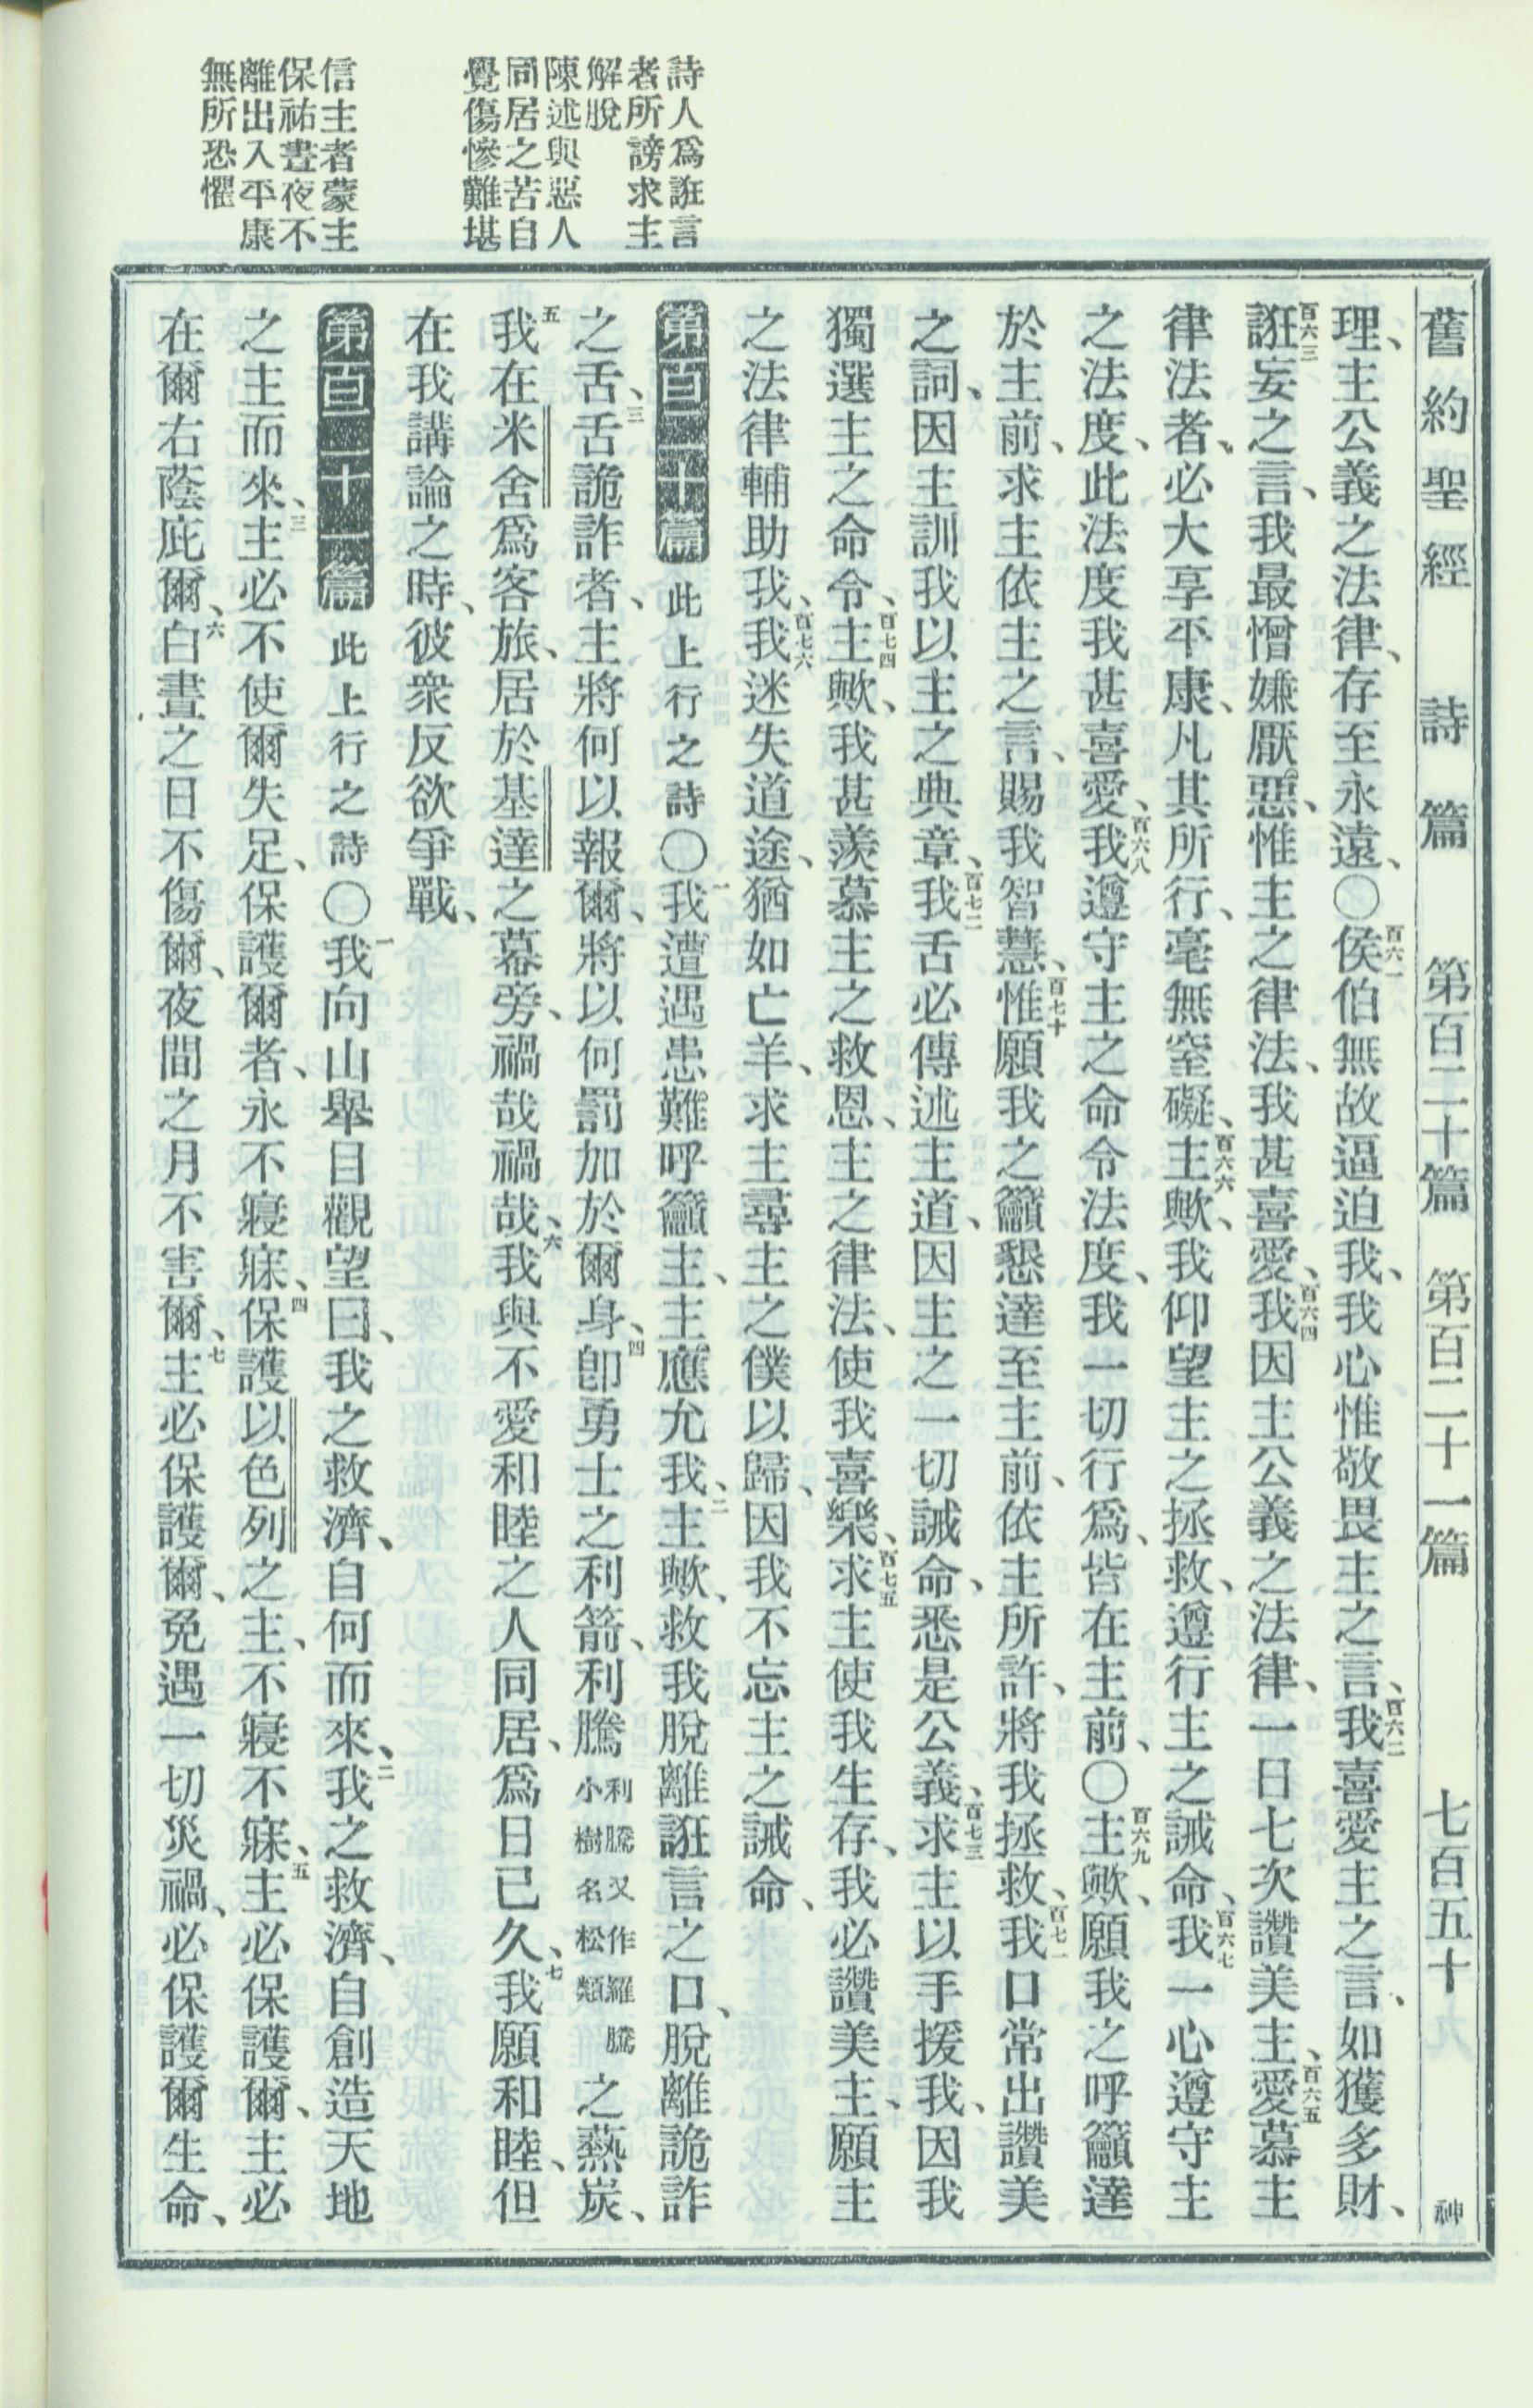 舊約聖經 詩篇 第百二十篇 第百二十一篇 七百五十九 神
理、主公義之法律、存至永遠、〇百六一侯伯無故逼迫我、我心惟敬畏主之言、百六二我喜愛主之言、如獲多財、
百六三誑妄之言、我最憎嫌厭惡、惟主之律法、我甚喜愛、百六四我因主公義之法律、一日七次讚美主、百六五愛慕主
律法者、必大享平康、凡其所行、毫無窒礙、百六六主歟、我仰望主之拯救、遵行主之誡命、百六七我一心遵守主
之法度、此法度我甚喜愛、百六八我遵守主之命令法度、我一切行爲、皆在主前、〇百六九主歟、願我之呼籲達
於主前、求主依主之言、賜我智慧、百七十惟願我之籲懇達至主前、依主所許、將我拯救、百七一我口常出讚美
之詞、因主訓我以主之典章、百七二我舌必傳述主道、因主之一切誡命、悉是公義、百七三求主以手援我、因我
獨選主之命令、百七四主歟、我甚羨慕主之救恩、主之律法、使我喜樂、百七五求主使我生存、我必讚美主、願主
之法律輔助我、百七六我迷失道途、猶如亡羊、求主尋主之僕以歸、因我不忘主之誡命、
第百二十篇 此上行之詩〇一我遭遇患難呼籲主、主應允我、二主歟、救我脫離誑言之口、脫離詭詐
之舌、三舌詭詐者、主將何以報爾、將以何罰加於爾身、四卽勇士之利箭、利騰利騰又作羅騰小樹名松類之熱炭、
五我在米舍爲客旅、居於基達之幕旁、禍哉禍哉、六我與不愛和睦之人同居、爲日已久、七我願和睦、但
在我講論之時、彼衆反欲爭戰、
第百二十一篇 此上行之詩〇一我向山舉目觀望曰、我之救濟、自何而來、二我之救濟、自創造天地
之主而來、三主必不使爾失足、保護爾者、永不寢寐、四保護以色列之主、不寢不寐、五主必保護爾、主必
在爾右蔭庇爾、六白晝之日不傷爾、夜間之月不害爾、七主必保護爾、免遇一切災禍、必保護爾生命、
詩人爲誑言
者所謗求主
解脫
陳述與惡人
同居之苦自
覺傷慘難堪
信主者蒙主
保祐晝夜不
離出入平康
無所恐懼